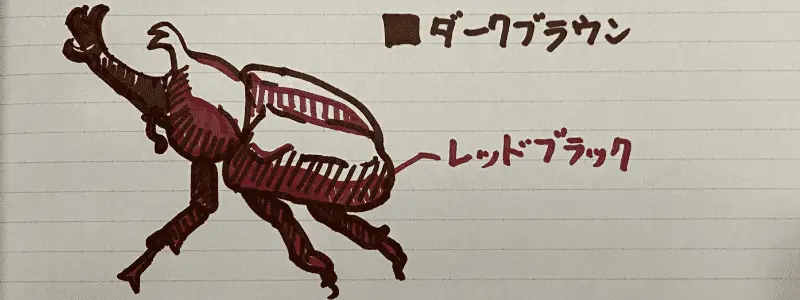 ダークブラウン
レッドブラック